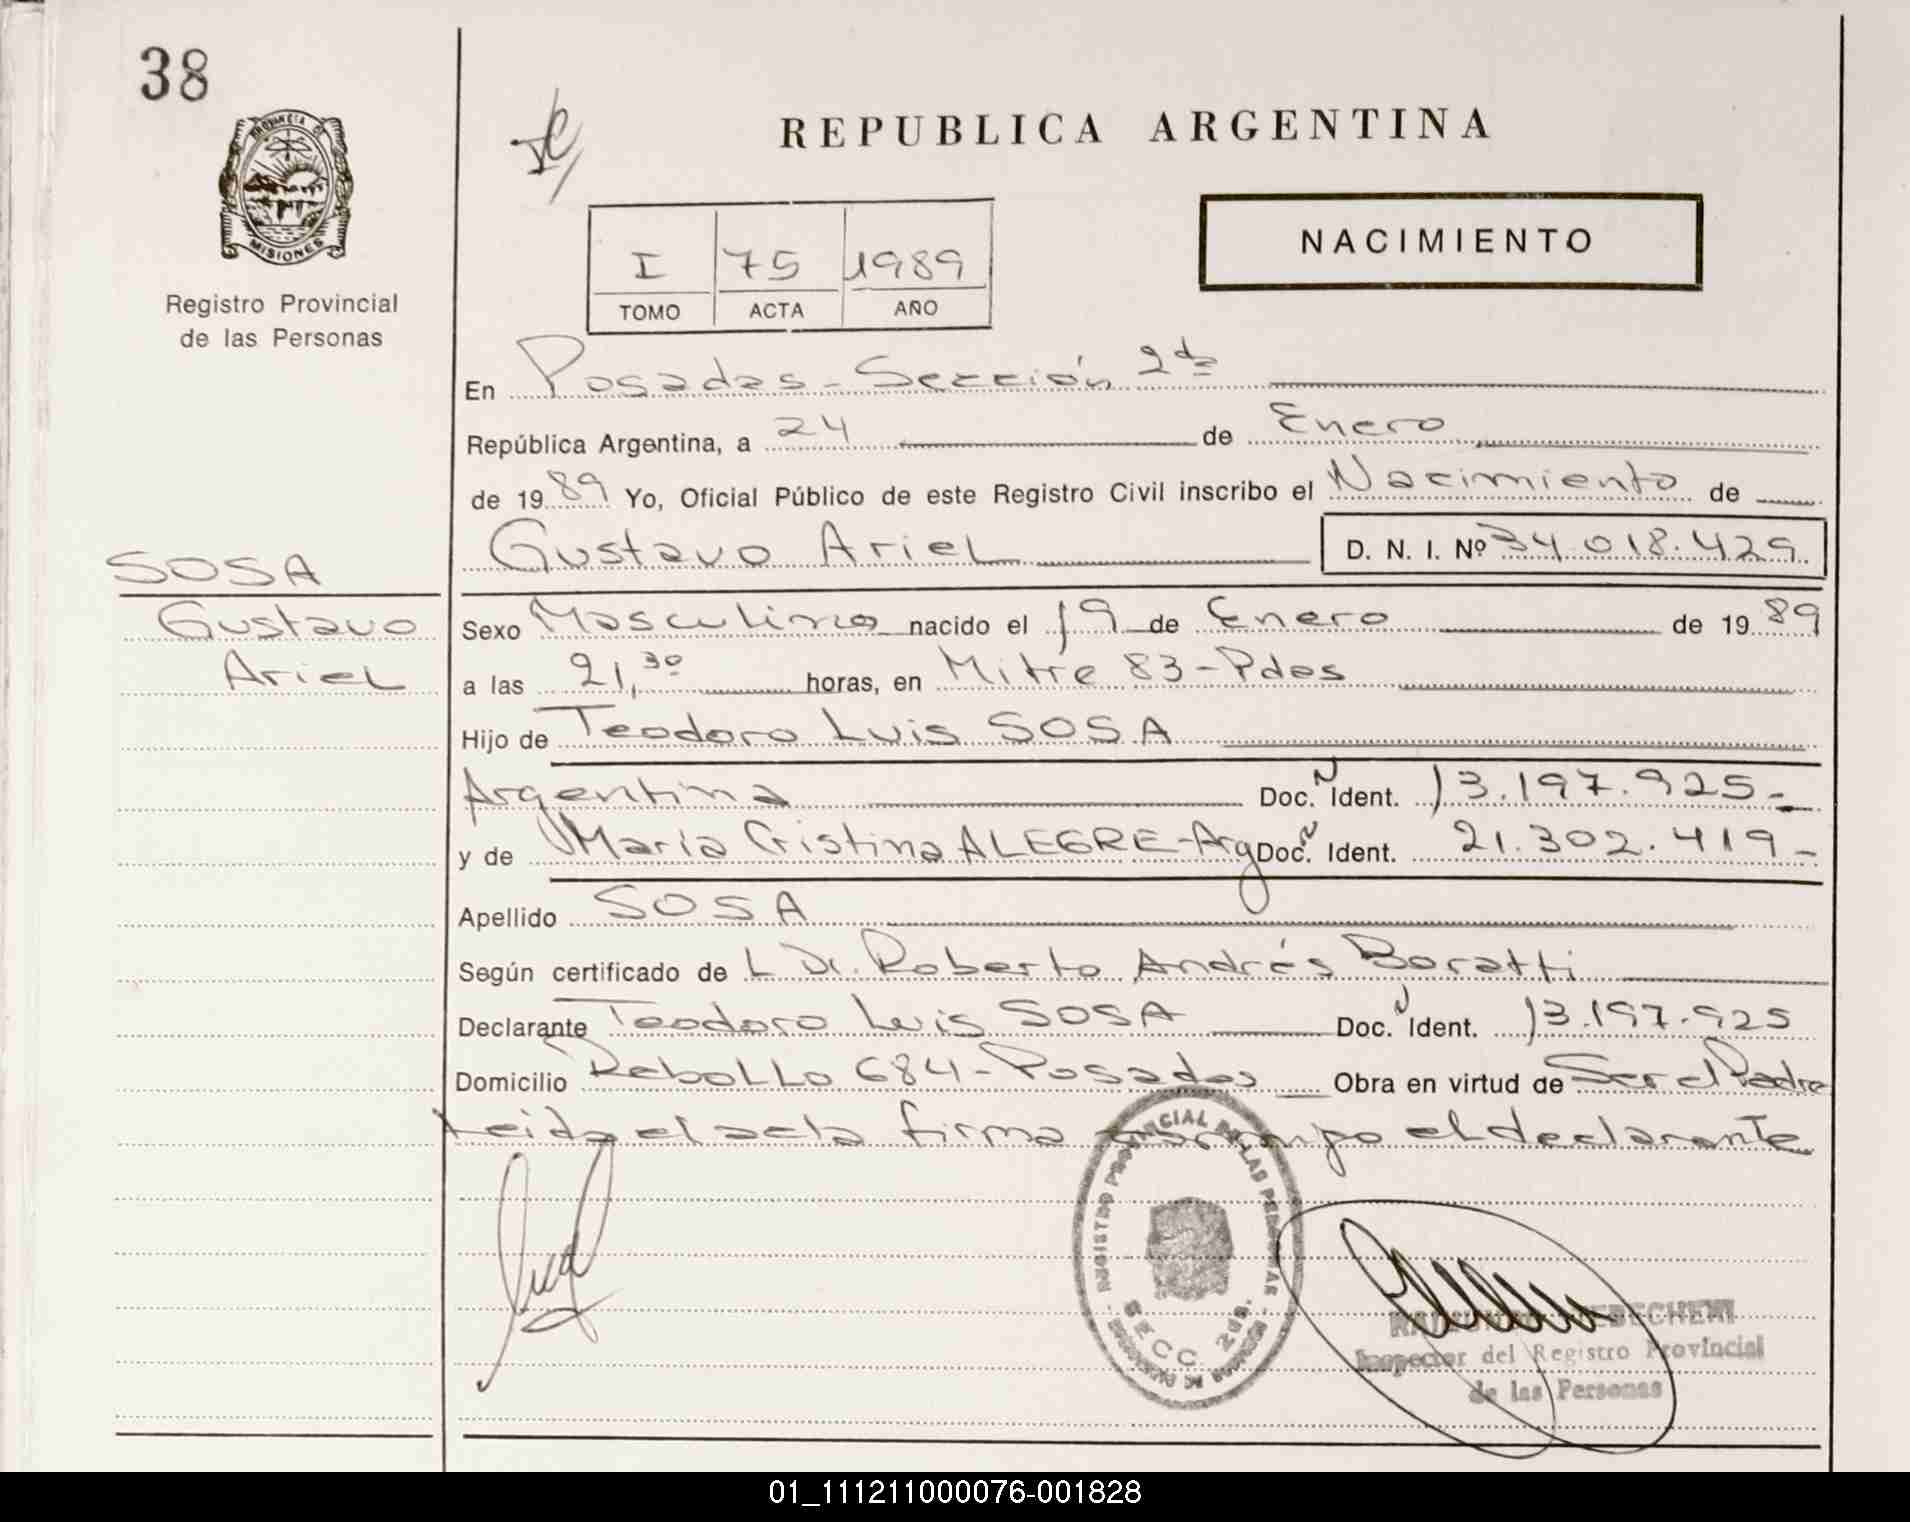 38
PROVINCIA DE
MISIONES
Registro Provincial
de las Personas
REPUBLICA ARGENTINA
NACIMIENTO
I 75 1989
TOMO ACTA AÑO
En Posadas - Sección 2da
República Argentina, a 24 de Enero
de 1989 Yo, Oficial Público de este Registro Civil inscribo el Nacimiento de
Gustavo Ariel D. N. I. Nº 34.018.429
SOSA
Gustavo
Ariel
Sexo Masculino nacido el 19 de Enero de 1989
a las 21,30 horas, en Mitre 83 - Pdas
Hijo de Teodoro Luis SOSA
Argentina Doc. N Ident. 13.197.925-
y de María Cristina ALEGRE - Arg Doc. N Ident. 21.302.419-
Apellido SOSA
Según certificado de L Dr. Roberto Andrés Boratti
Declarante Teodoro Luis SOSA Doc. Ident. 13.197.925
Domicilio Rebollo 684 - Posadas Obra en virtud de Ser el Padre
Leida el acta firma el declarante
REGISTRO PROVINCIAL DE LAS PERSONAS
SECC. 2da.
Inspector del Registro Provincial
de las Personas
01_111211000076-001828